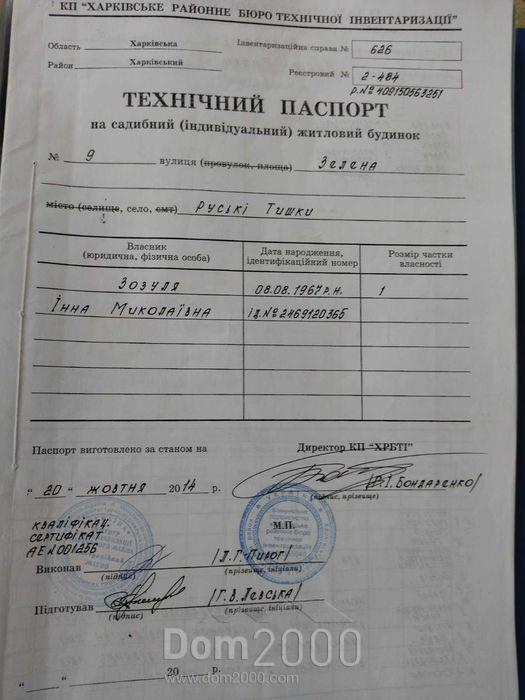 КП “ХАРКІВСЬКЕ РАЙОННЕ БЮРО ТЕХНІЧНОЇ ІНВЕНТАРИЗАЦІЇ”
Область Харківська Інвентаризаційна справа № 626
Район Харківський Реєстровий № 2-484
р.№ 409150563251
ТЕХНІЧНИЙ ПАСПОРТ
на садибний (індивідуальний) житловий будинок
№ 9 вулиця (провулок, площа) Зелена
місто (селище, село, смт) Руські Тишки
Власник (юридична, фізична особа) Дата народження, ідентифікаційний номер Розмір частки власності
Зозуля 08.08.1967 р.н. 1
Інна Миколаївна ід.№ 2469120365
Паспорт виготовлено за станом на Директор КП “ХРБТІ”
“20” жовтня 2014 р. /В.І. Бондаренко/
(підпис, прізвище)
кваліфікац.
сертифікат М.П.
АЕ № 001256
Виконав /Л.Г. Пирог/
(підпис) (прізвище, ініціали)
Підготував /Г.В. Левська/
(підпис) (прізвище, ініціали)
Dom2000
“ ” 20 р.
www.dom2000.com